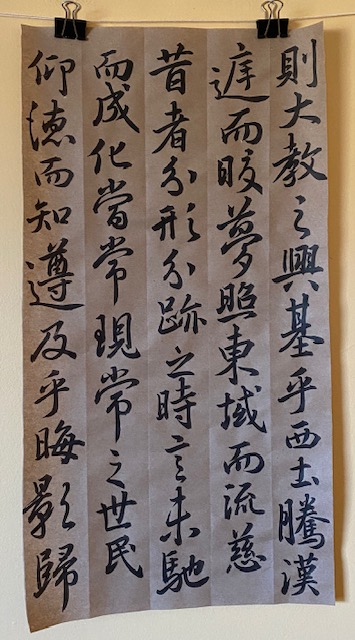 則大教之興基乎西土騰漢
庭而皎夢照東域而流慈
昔者分形分跡之時言未馳
而成化當常現常之世民
仰德而知遵及乎晦影歸